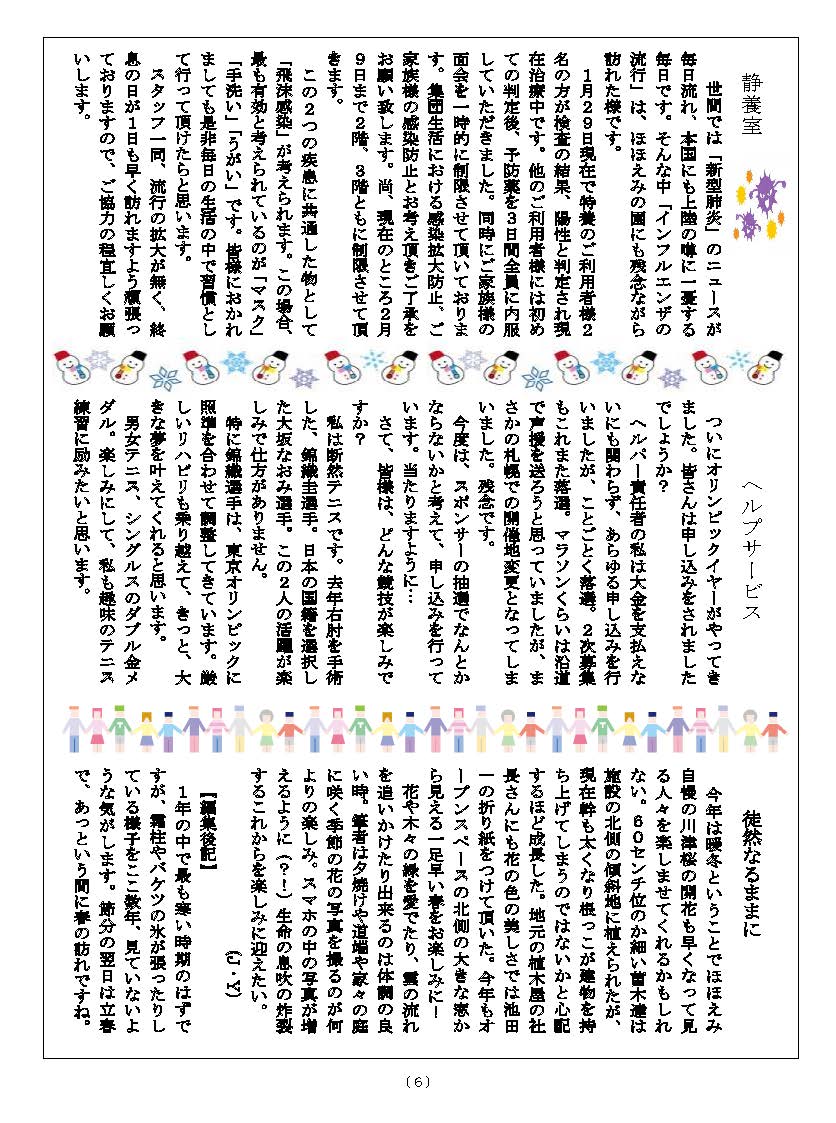 静養室
　世間では「新型肺炎」のニュースが
毎日流れ、本国にも上陸の噂に一憂する
毎日です。そんな中「インフルエンザの
流行」は、ほほえみの園にも残念ながら
訪れた様です。
　１月２９日現在で特養のご利用者様２
名の方が検査の結果、陽性と判定され現
在治療中です。他のご利用者様には初め
ての判定後、予防薬を３日間全員に内服
していただきました。同時にご家族様の
面会を一時的に制限させて頂いておりま
す。集団生活における感染拡大防止、ご
家族様の感染防止とお考え頂きご了承を
お願い致します。尚、現在のところ２月
９日まで２階、３階ともに制限させて頂
きます。
　この２つの疾患に共通した物として
「飛沫感染」が考えられます。この場合、
最も有効と考えられているのが「マスク」
「手洗い」「うがい」です。皆様におかれ
ましても是非毎日の生活の中で習慣とし
て行って頂けたらと思います。
　スタッフ一同、流行の拡大が無く、終
息の日が１日も早く訪れますよう頑張っ
ておりますので、ご協力の程宜しくお願
いします。
ヘルプサービス
　ついにオリンピックイヤーがやってき
ました。皆さんは申し込みをされました
でしょうか？
　ヘルパー責任者の私は大金を支払えな
いにも関わらず、あらゆる申し込みを行
いましたが、ことごとく落選。２次募集
もこれまた落選。マラソンくらいは沿道
で声援を送ろうと思っていましたが、ま
さかの札幌での開催地変更となってしま
いました。残念です。
　今度は、スポンサーの抽選でなんとか
ならないかと考えて、申し込みを行って
います。当たりますように…
　さて、皆様は、どんな競技が楽しみで
すか？
　私は断然テニスです。去年右肘を手術
した、錦織圭選手。日本の国籍を選択し
た大坂なおみ選手。この２人の活躍が楽
しみで仕方がありません。
　特に錦織選手は、東京オリンピックに
照準を合わせて調整してきています。厳
しいリハビリも乗り越えて、きっと、大
きな夢を叶えてくれると思います。
　男女テニス、シングルスのダブル金メ
ダル。楽しみにして、私も趣味のテニス
練習に励みたいと思います。
徒然なるままに
　今年は暖冬ということでほほえみ
自慢の川津桜の開花も早くなって見
る人々を楽しませてくれるかもしれ
ない。６０センチ位のか細い苗木達は
施設の北側の傾斜地に植えられたが、
現在幹も太くなり根っこが建物を持
ち上げてしまうのではないかと心配
するほど成長した。地元の植木屋の社
長さんにも花の色の美しさでは池田
一の折り紙をつけて頂いた。今年もオ
ープンスペースの北側の大きな窓か
ら見える一足早い春をお楽しみに！
　花や木々の緑を愛でたり、雲の流れ
を追いかけたり出来るのは体調の良
い時。筆者は夕焼けや道端や家々の庭
に咲く季節の花の写真を撮るのが何
よりの楽しみ。スマホの中の写真が増
えるように（？！）生命の息吹の炸裂
するこれからを楽しみに迎えたい。
（Ｕ・Ｙ）
【編集後記】
　１年の中で最も寒い時期のはずで
すが、霜柱やバケツの氷が張ったりし
ている様子をここ数年、見ていないよ
うな気がします。節分の翌日は立春
で、あっという間に春の訪れですね。
（６）